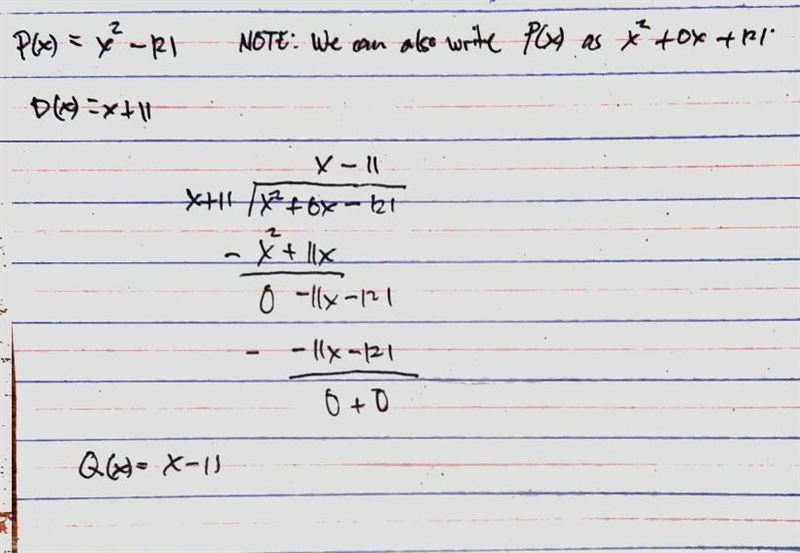 P(x) = x² - 121 NOTE: We can also write P(x) as x² + 0x + 121.
D(x) = x + 11
x - 11
x+11 / x² + 0x - 121
- x² + 11x
0 -11x - 121
- -11x - 121
0 + 0
Q(x) = x - 11